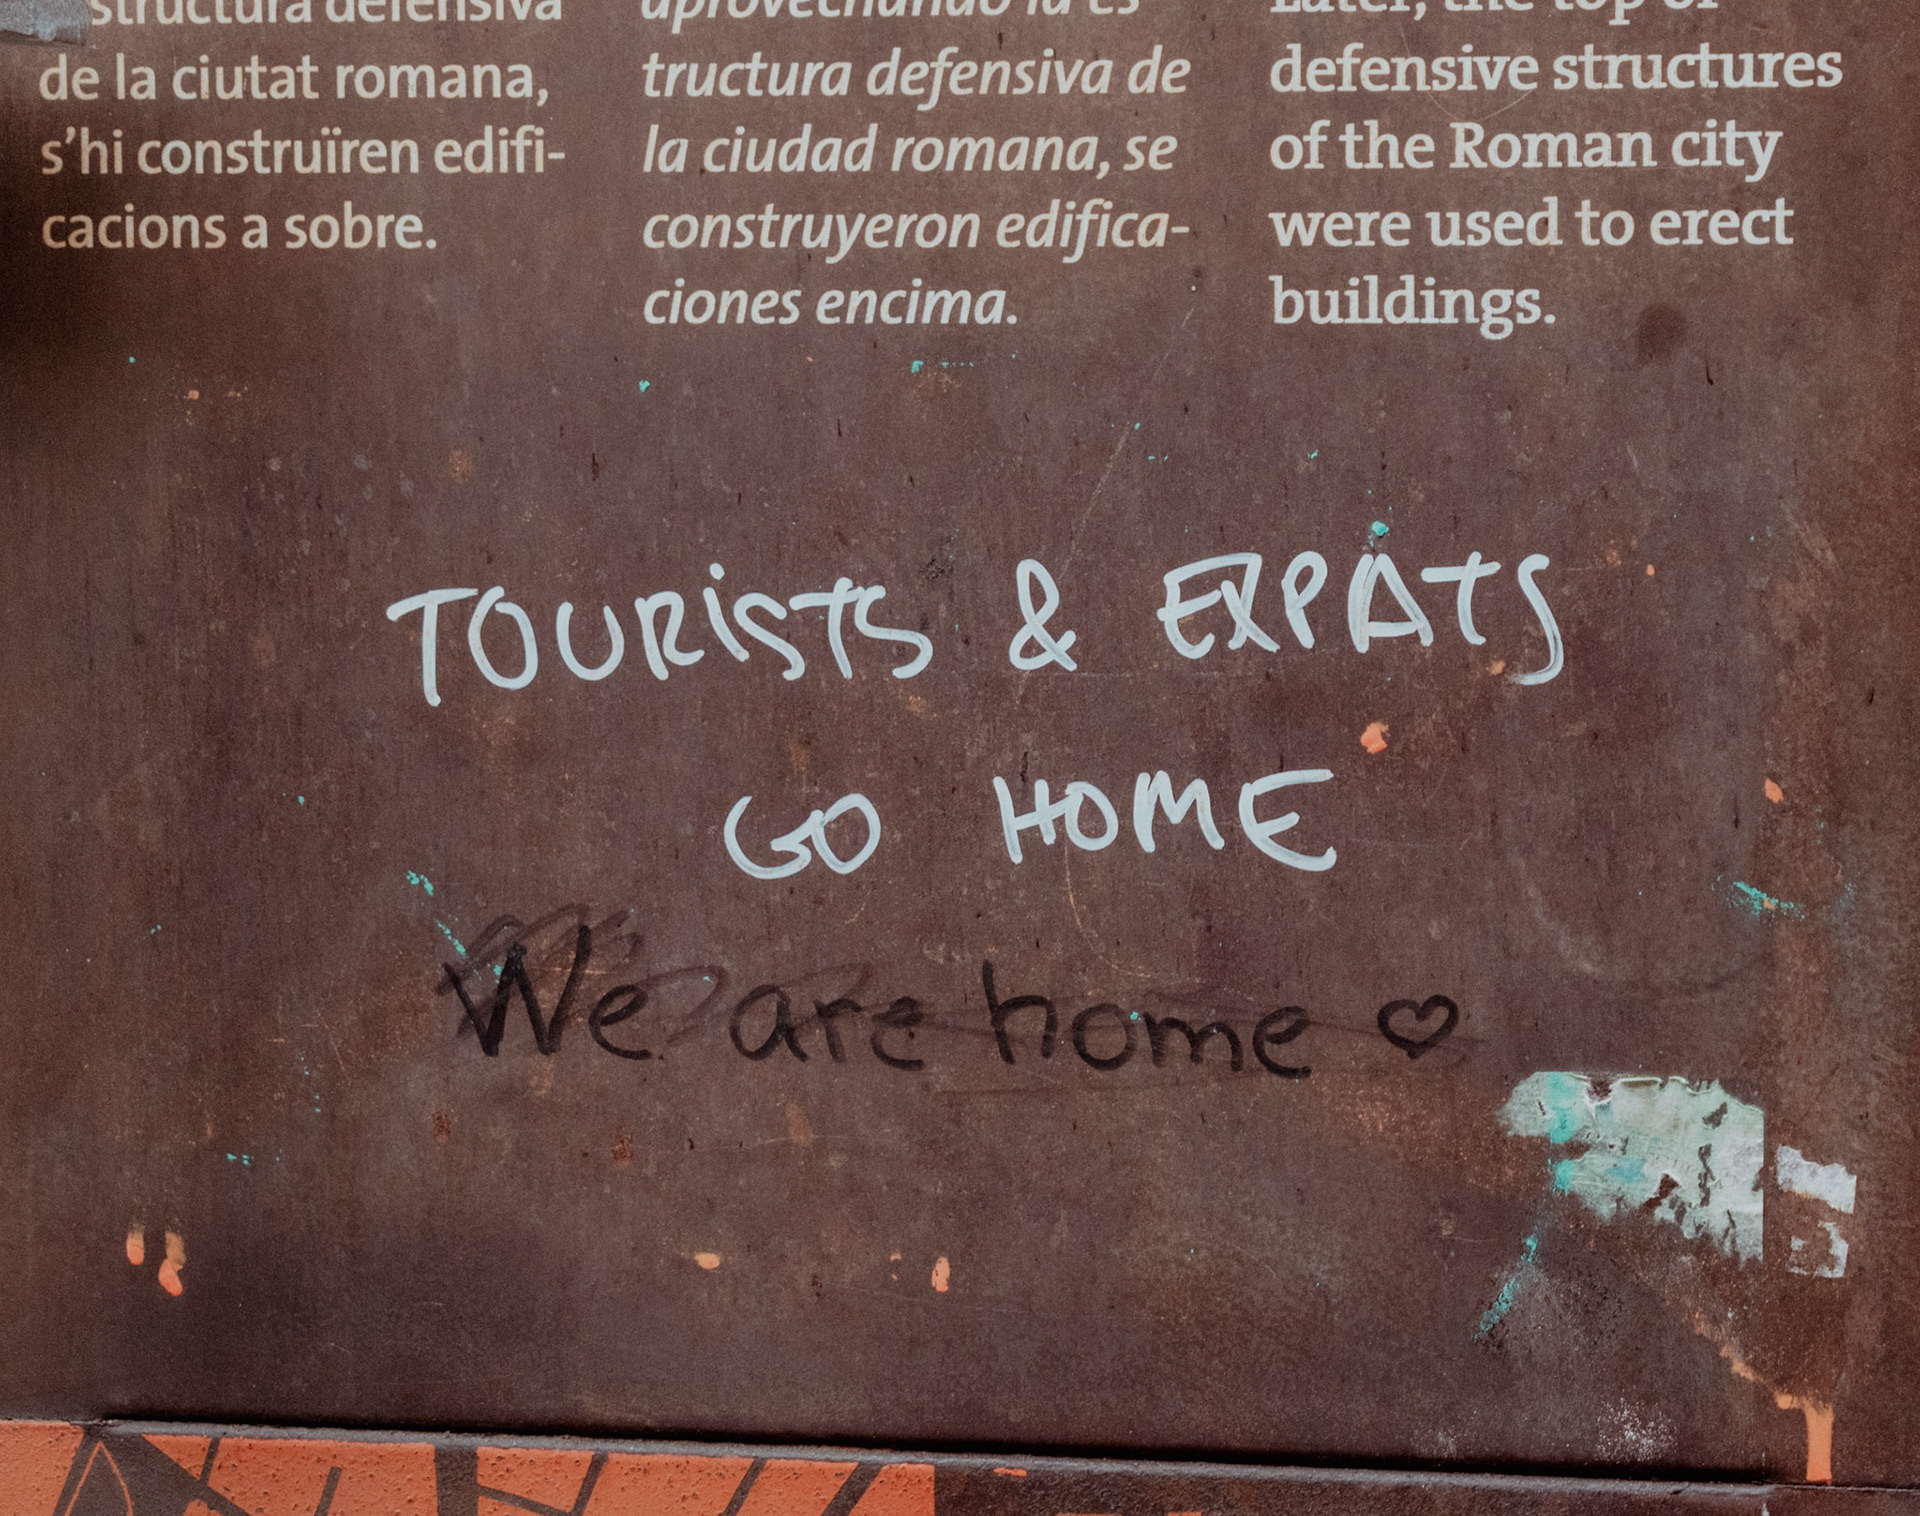 structura defensiva
de la ciutat romana,
s'hi construïren edifi-
cacions a sobre.
aprovechando la es
tructura defensiva de
la ciudad romana, se
construyeron edifica-
ciones encima.
Later, the top of
defensive structures
of the Roman city
were used to erect
buildings.
TOURiSTS & EXPATS
GO HOME
We are home ♡